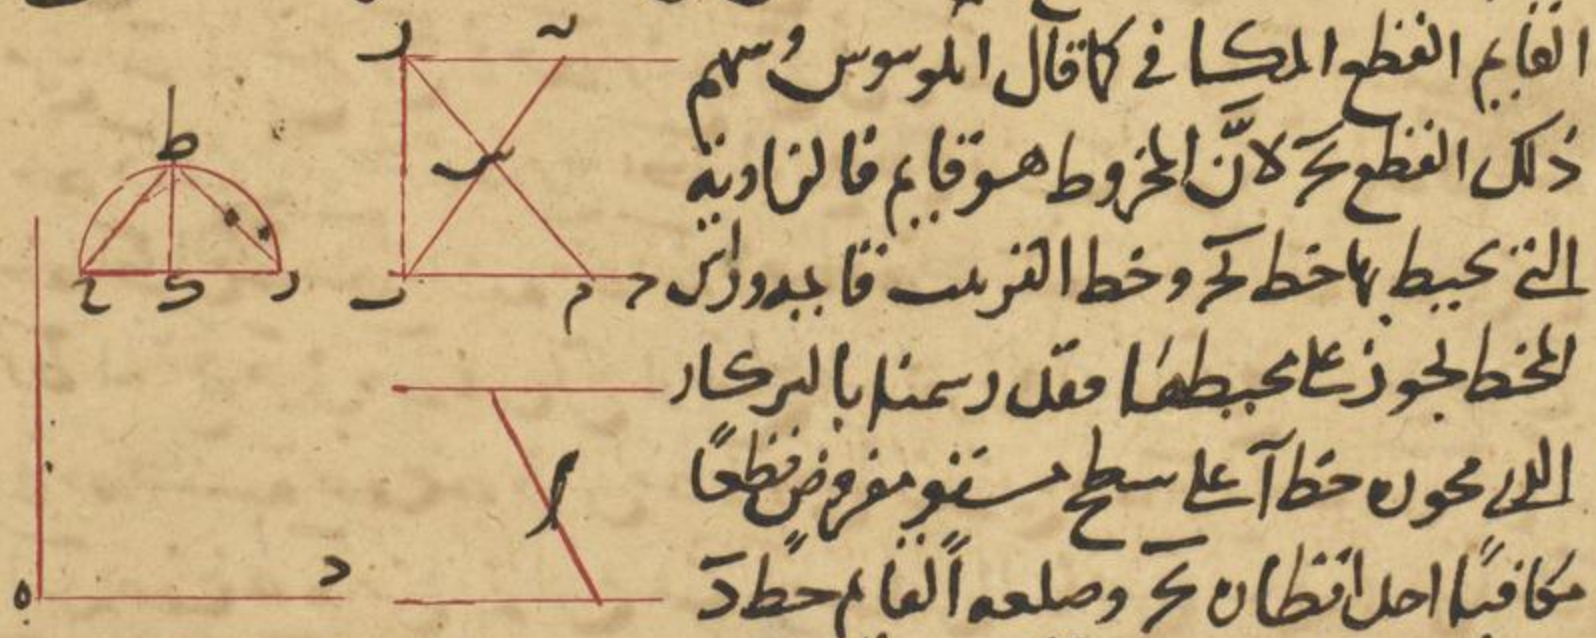 القايم القطع المكافي كما قال ابلونيوس وسهم
ذلك القطع بحر لان المخروط هو قايم فالزاوية
التي يحيط بها خط بحر وخط الترتيب قايمه وراس
المخط يجوز على محيطها فقد رسمنا بالبركار
الذي محوره خط آ على سطح مستو مفروض قطعاً
مكافياً احد اقطاره بحر وضلعه القايم خط د
ر
ن
س
ب
م
ح
ط
ح
ى
ر
ا
ه
د